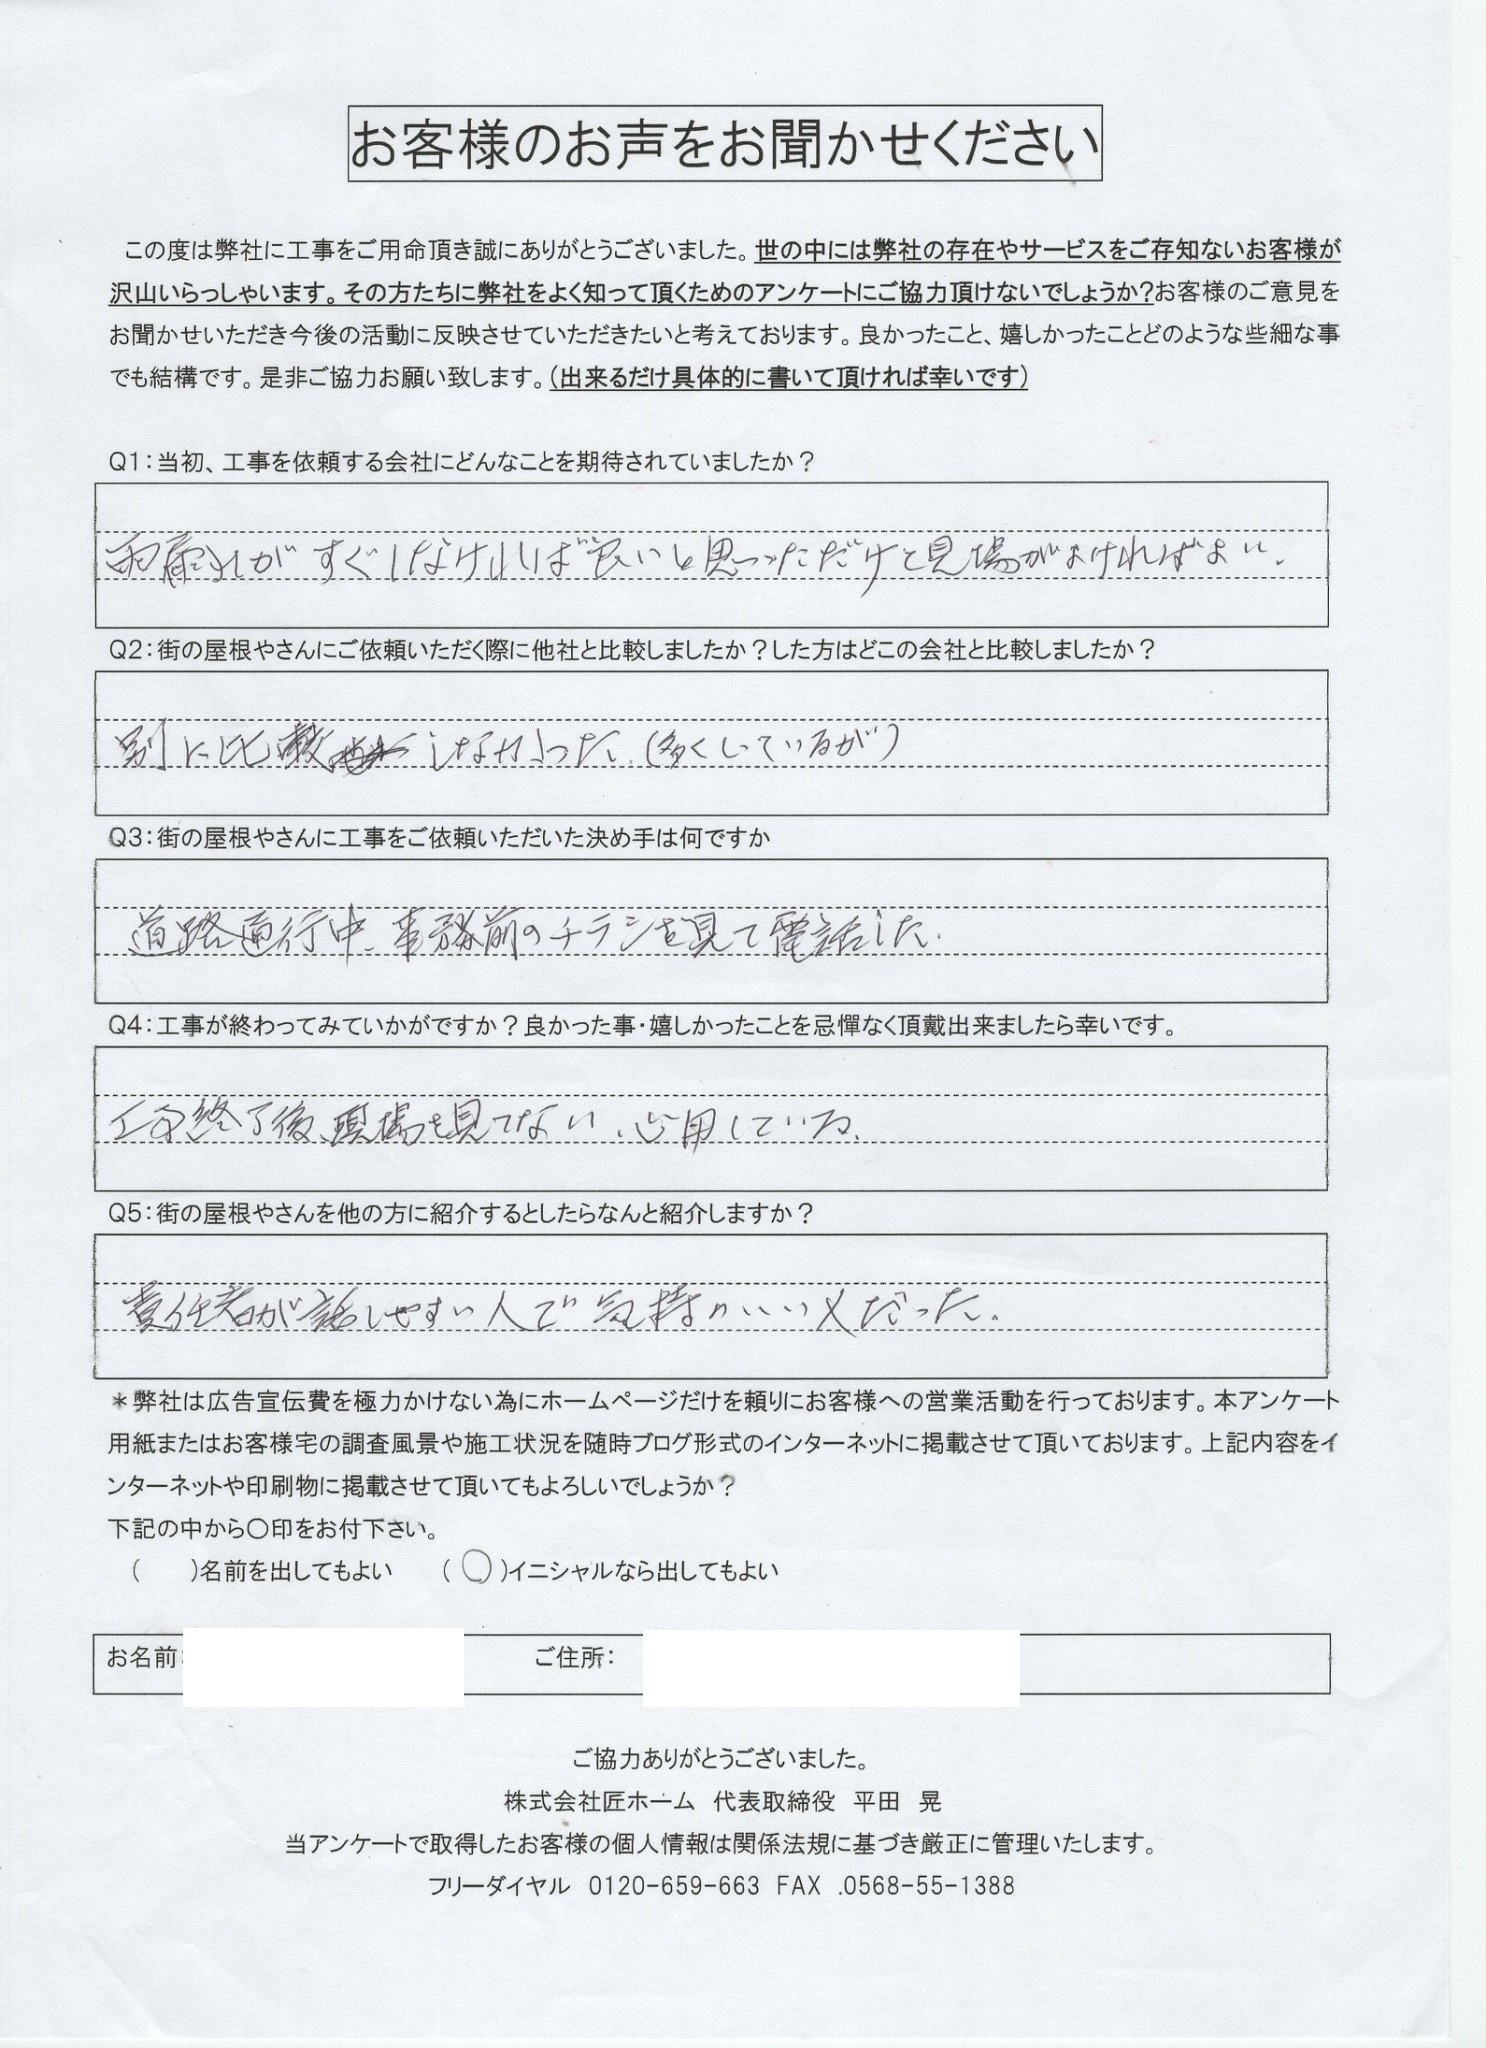 お客様のお声をお聞かせください
この度は弊社に工事をご用命頂き誠にありがとうございました。世の中には弊社の存在やサービスをご存知ないお客様が
沢山いらっしゃいます。その方たちに弊社をよく知って頂くためのアンケートにご協力頂けないでしょうか?お客様のご意見を
お聞かせいただき今後の活動に反映させていただきたいと考えております。良かったこと、嬉しかったことどのような些細な事
でも結構です。是非ご協力お願い致します。(出来るだけ具体的に書いて頂ければ幸いです)
Q1:当初、工事を依頼する会社にどんなことを期待されていましたか?
雨漏れがすぐしなければ良いと思っただけと見場がよければよい.
Q2:街の屋根やさんにご依頼いただく際に他社と比較しましたか?した方はどこの会社と比較しましたか?
別に比較しなかった.(多くしているが)
Q3:街の屋根やさんに工事をご依頼いただいた決め手は何ですか
道路通行中、事務前のチラシを見て電話した.
Q4:工事が終わってみていかがですか?良かった事・嬉しかったことを忌憚なく頂戴出来ましたら幸いです。
工事終了後、現場を見てない、している.
Q5:街の屋根やさんを他の方に紹介するとしたらなんと紹介しますか?
責任者が話しやすい人で気持のいい人だった.
＊弊社は広告宣伝費を極力かけない為にホームページだけを頼りにお客様への営業活動を行っております。本アンケート
用紙またはお客様宅の調査風景や施工状況を随時ブログ形式のインターネットに掲載させて頂いております。上記内容をイ
ンターネットや印刷物に掲載させて頂いてもよろしいでしょうか?
下記の中から○印をお付下さい。
(　　)名前を出してもよい　(○)イニシャルなら出してもよい
お名前:　ご住所:
ご協力ありがとうございました。
株式会社匠ホーム　代表取締役　平田　晃
当アンケートで取得したお客様の個人情報は関係法規に基づき厳正に管理いたします。
フリーダイヤル 0120-659-663 FAX .0568-55-1388